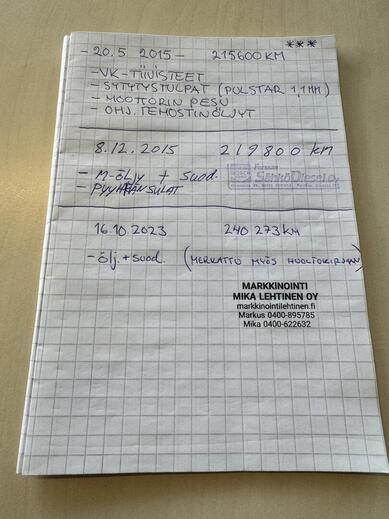 ***
- 20.5 2015 - 215600 KM
- VK-TIIVISTEET
- SYTYTYSTULPAT (PULSTAR 1,1MM)
- MOOTTORIN PESU
- OHJ. TEHOSTINÖLJYT
8.12.2015 219800 km
- M-ÖLJY + Suod.
- PYYHKIÄN SULAT
BOSCH
SähköDiesel Oy
16.10.2023 240 273 KM
- Ölj. + Suod. (MERKATTU MYÖS HUOLTOKIRJAAN)
MARKKINOINTI
MIKA LEHTINEN OY
markkinointilehtinen.fi
Markus 0400-895785
Mika 0400-622632